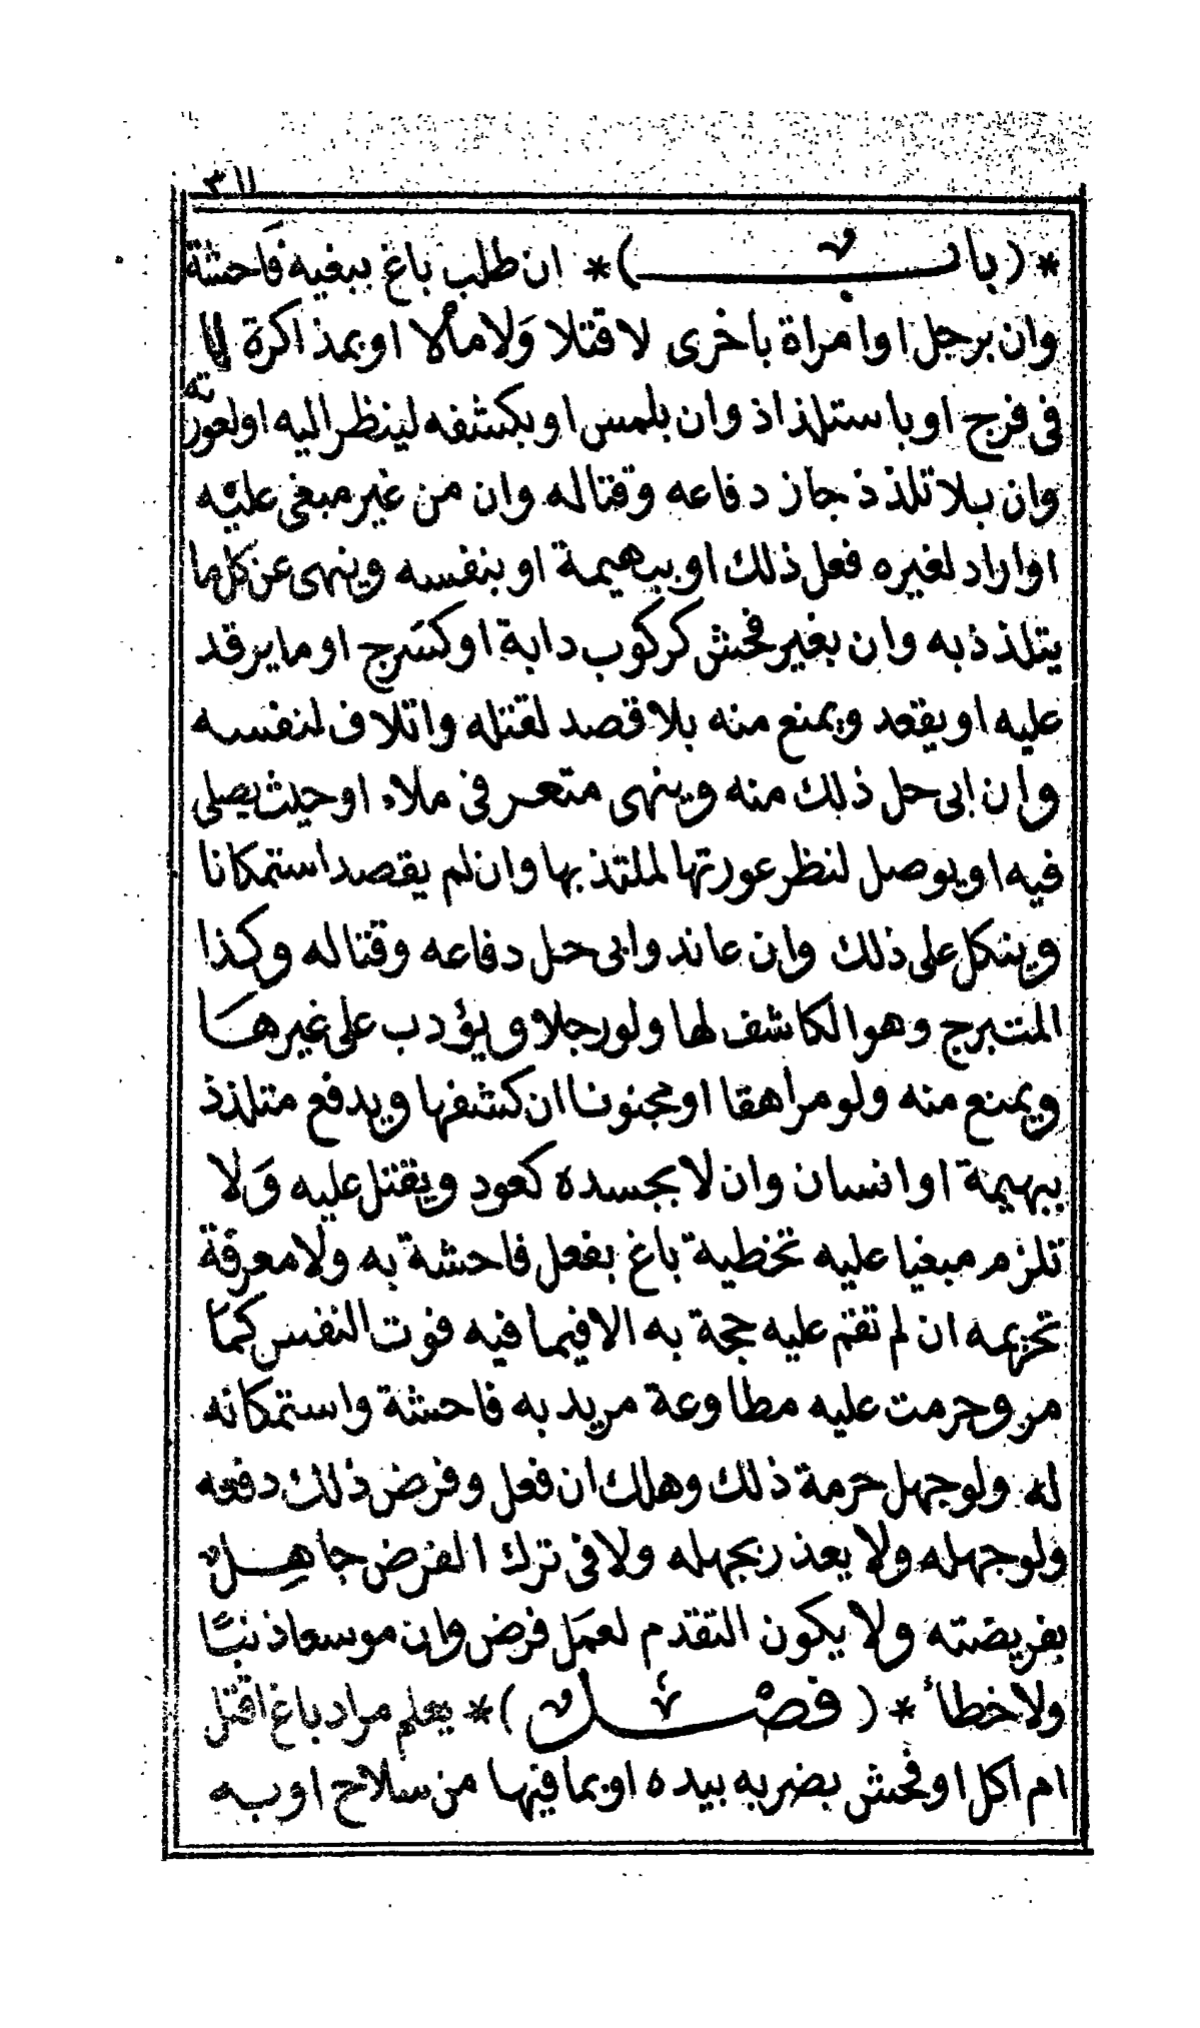 ٣١١
*( باب )* ان طلب باغ ببغيه فاحشة
وان برجل او امراة باخرى لا قتلا ولا مالا او بمذاكرة لا
في فرج او باستلذاذ وان بلمس او بكشفه لينظر اليه او لعورته
وان بلا تلذذ جاز دفاعه وقتاله وان من غير مبغى عليه
او اراد لغيره فعل ذلك او ببهيمة او بنفسه وينهى عن كل ما
يتلذذ به وان بغير فحش كركوب دابة او كسرج او ما يرقد
عليه او يقعد ويمنع منه بلا قصد لقتله واتلاف لنفسه
وان ابى حل ذلك منه وينهى متعر في ملاء او حيث يصلى
فيه او يوصل لنظر عورتها لملتذ بها وان لم يقصد استمكانا
وينكل على ذلك وان عاند وابى حل دفاعه وقتاله وكذا
المتبرج وهو الكاشف لها ولو رجلا ويؤدب على غيرها
ويمنع منه ولو مراهقا او مجنونا ان كشفها ويدفع متلذذ
ببهيمة او انسان وان لا بجسده كعود ويقتل عليه ولا
تلزم مبغيا عليه تخطية باغ بفعل فاحشة به ولا معرفة
تحريمه ان لم تقم عليه حجة به الا فيما فيه فوت النفس كما
مر وحرمت عليه مطاوعة مريد به فاحشة واستمكانه
له ولو جهل حرمة ذلك وهلك ان فعل وفرض ذلك دفعه
ولو جهله ولا يعذر بجهله ولا في ترك الفرض جاهل
بفريضته ولا يكون التقدم لعمل فرض وان موسعا ذنبا
ولا خطأ *( فصل )* يعلم مراد باغ اقتل
ام اكل او فحش بضربه بيده او بما فيها من سلاح او به